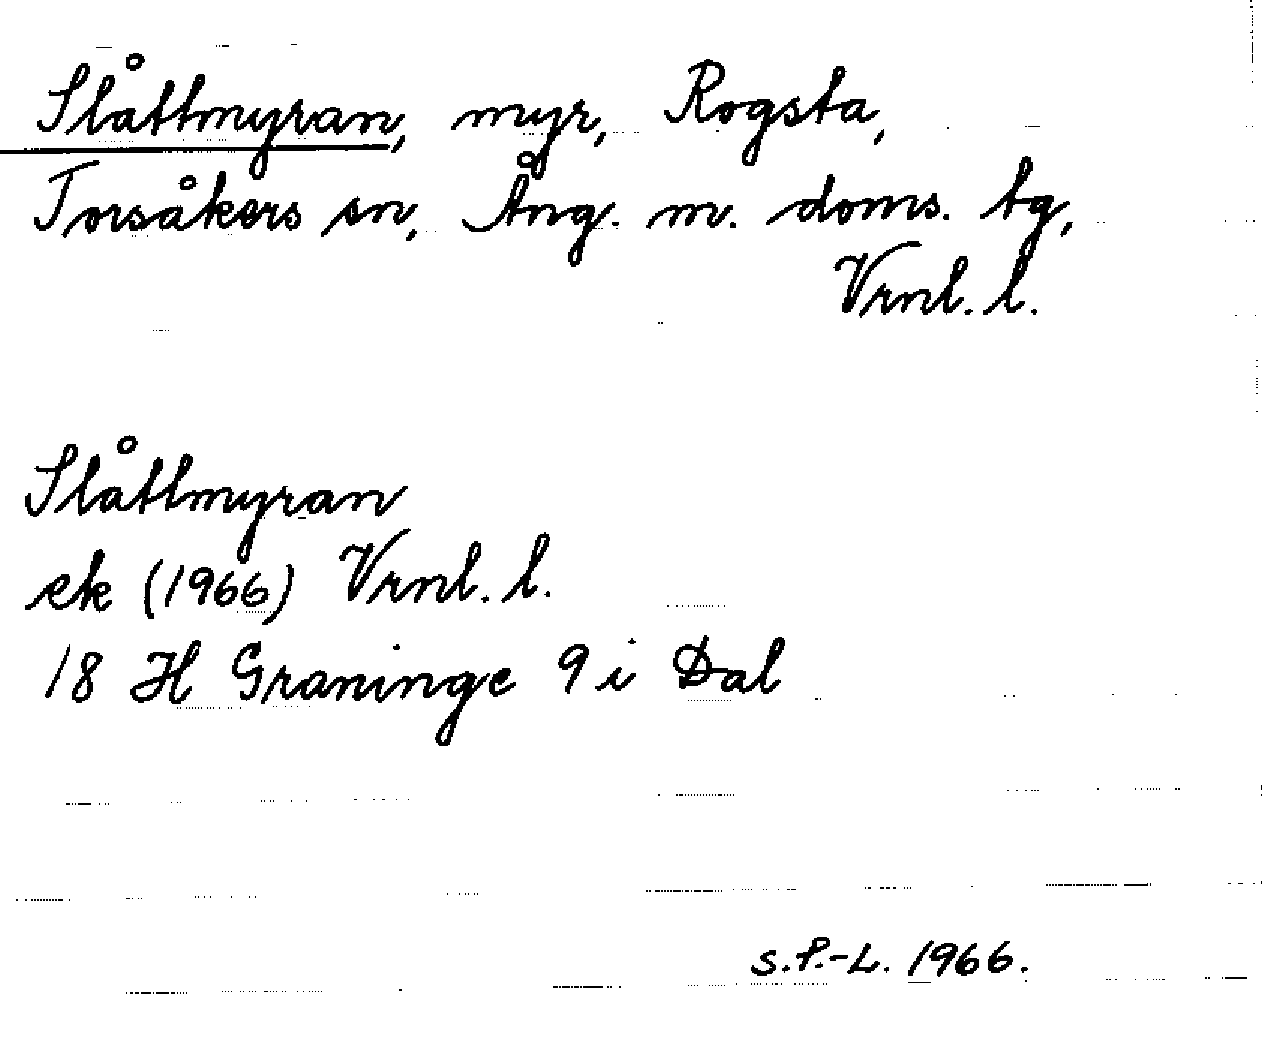 Slåttmyran, myr, Rogsta,
Torsåkers sn, Ång. m. doms. tg,
Vrnl. l.
Slåttmyran
ek (1966) Vrnl. l.
18 H Graninge 9 i Dal
S.P.-L. 1966.